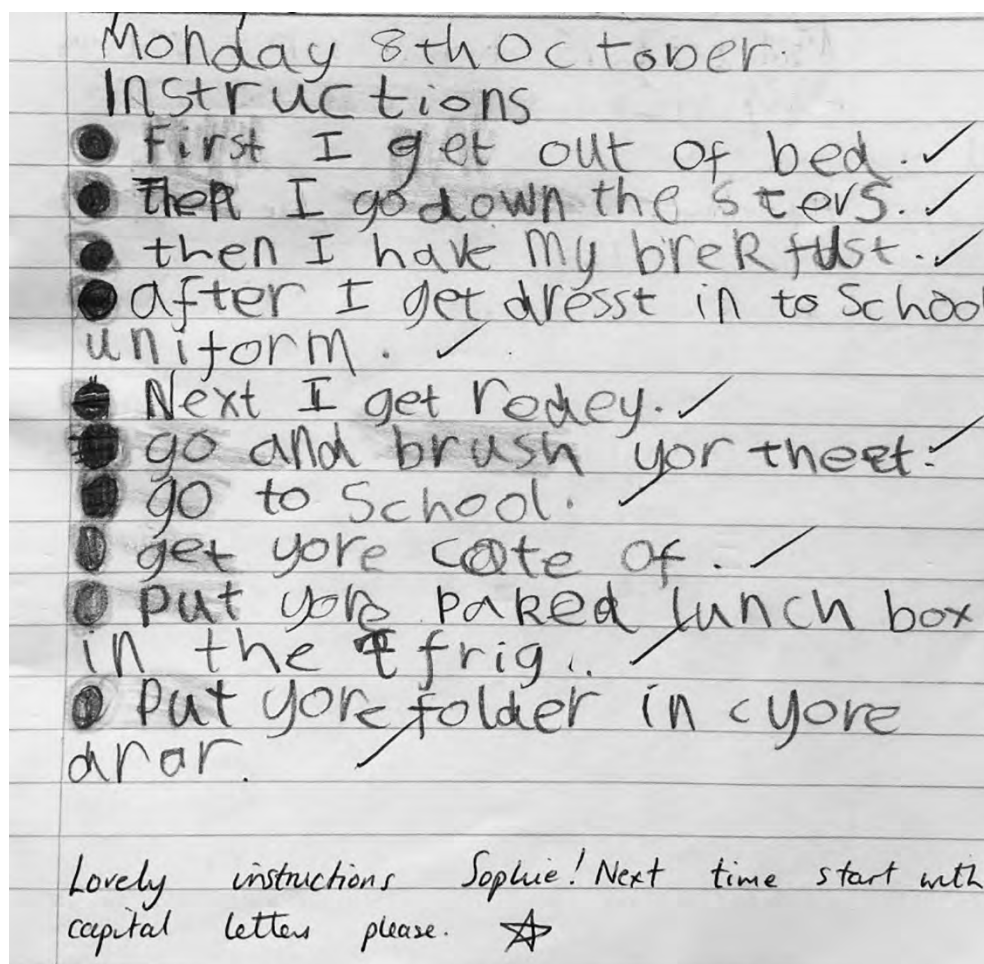 Monday 8th October.
Instructions
● First I get out of bed.
● Then I go down the sters.
● then I have my brekfust.
● after I get dresst in to School
uniform.
● Next I get rodey.
● go and brush yor theet.
● go to School.
● get yore cote of.
● put yore paked lunch box
in the frig.
● Put yore folder in cyore
drar.
Lovely instructions Sophie! Next time start with
capital letters please. ☆